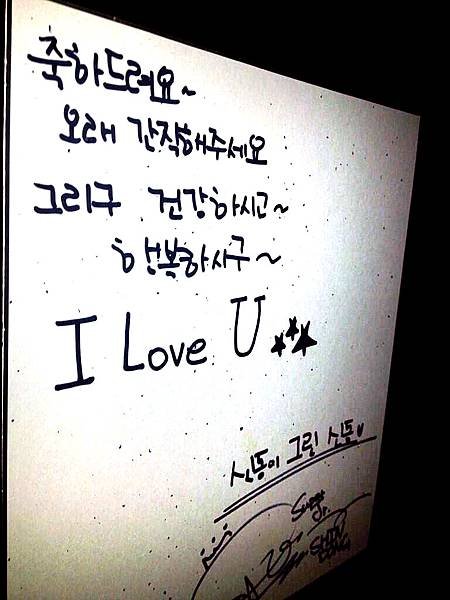 축하드려요~
오래 간직해주세요
그리구 건강하시고~
행복하시구~
I Love U
신동이 그린 신동
Super Jr.
SHIN DONG